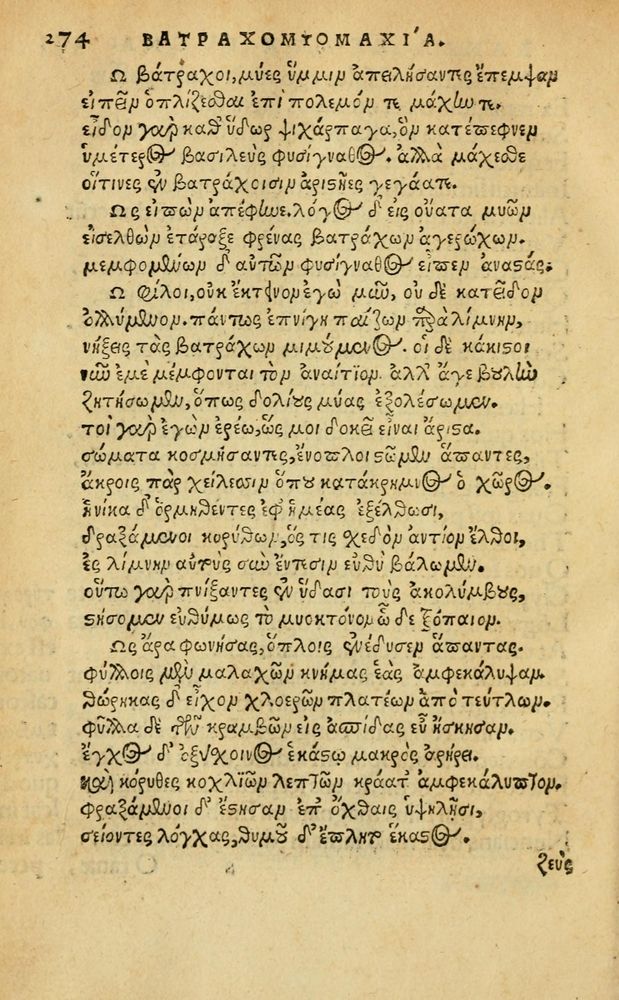 274 ΒΑΤΡΑΧΟΜΥΟΜΑΧΙ´Α.
Ω βάτραχοι, μύες ὔμμιν ἀπειλήσαντες ἔπεμψαν
εἰπεῖν ὁπλίζεσθαι ἐπὶ πόλεμόν τε μάχην τε.
εἶδον γὰρ καθ' ὕδωρ ψιχάρπαγα, ὃν κατέπεφνεν
ὑμέτερος βασιλεὺς φυσίγναθος. ἀλλὰ μάχεσθε
οἵτινες ἐν βατράχοισιν ἀριστῆες γεγάατε.
Ως εἰπὼν ἀπέφηνε. λόγος δ' εἰς οὔατα μυῶν
εἰσελθὼν ἐτάραξε φρένας βατράχων ἀγερώχων.
μεμφομένων δ' αὐτῶν φυσίγναθος εἶπεν ἀναστάς.
Ω φίλοι, οὐκ ἔκτεινον ἐγὼ μῦν, οὐδὲ κατεῖδον
ὀλλύμενον. πάντως ἐπνίγη παίζων παρὰ λίμνην,
νήξεις τὰς βατράχων μιμούμενος. οἱ δὲ κάκιστοι
νῦν ἐμὲ μέμφονται τὸν ἀναίτιον. ἀλλ' ἄγε βουλὴν
ζητήσωμεν, ὅπως δολίους μύας ἐξολέσωμεν.
τοὶ γὰρ ἐγὼν ἐρέω, ὥς μοι δοκεῖ εἶναι ἄριστα.
σώματα κοσμήσαντες, ἔνοπλοι στῶμεν ἅπαντες,
ἄκροις πὰρ χείλεσσιν ὅπου κατάκρημνος ὁ χῶρος.
ἡνίκα δ' ὁρμηθέντες ἐφ' ἡμέας ἐξέλθωσι,
δραξάμενοι κορύθων, ὅς τις σχεδὸν ἀντίον ἔλθοι,
ἐς λίμνην αὐτοὺς σὺν ἔντεσιν εὐθὺ βάλωμεν.
οὕτω γὰρ πνίξαντες ἐν ὕδασι τοὺς ἀκολύμβους,
στήσομεν εὐθύμως τὸ μυοκτόνον ὧδε τρόπαιον.
Ως ἄρα φωνήσας, ὅπλοις ἐνέδυσεν ἅπαντας.
φύλλοις μὲν μαλαχῶν κνήμας ἑὰς ἀμφεκάλυψαν.
θώρηκας δ' εἶχον χλοερῶν πλατέων ἀπὸ τεύτλων.
φύλλα δὲ τῶν κραμβῶν εἰς ἀσπίδας εὖ ἤσκησαν.
ἔγχος δ' ὀξύσχοινος ἑκάστῳ μακρὸς ἀρήρει.
καὶ κόρυθες κοχλιῶν λεπτῶν κράατ' ἀμφεκάλυπτον.
φραξάμενοι δ' ἔστησαν ἐπ' ὄχθαις ὑψηλῇσι,
σείοντες λόγχας, θυμοῦ δ' ἔπλητο ἕκαστος.
ζεὺς